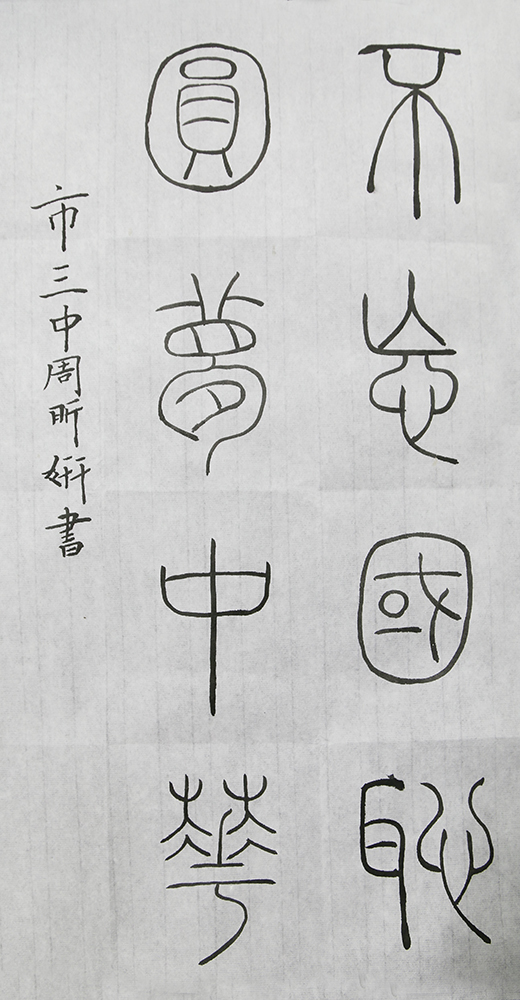 不忘國恥
圓夢中華
市三中周昕妍書